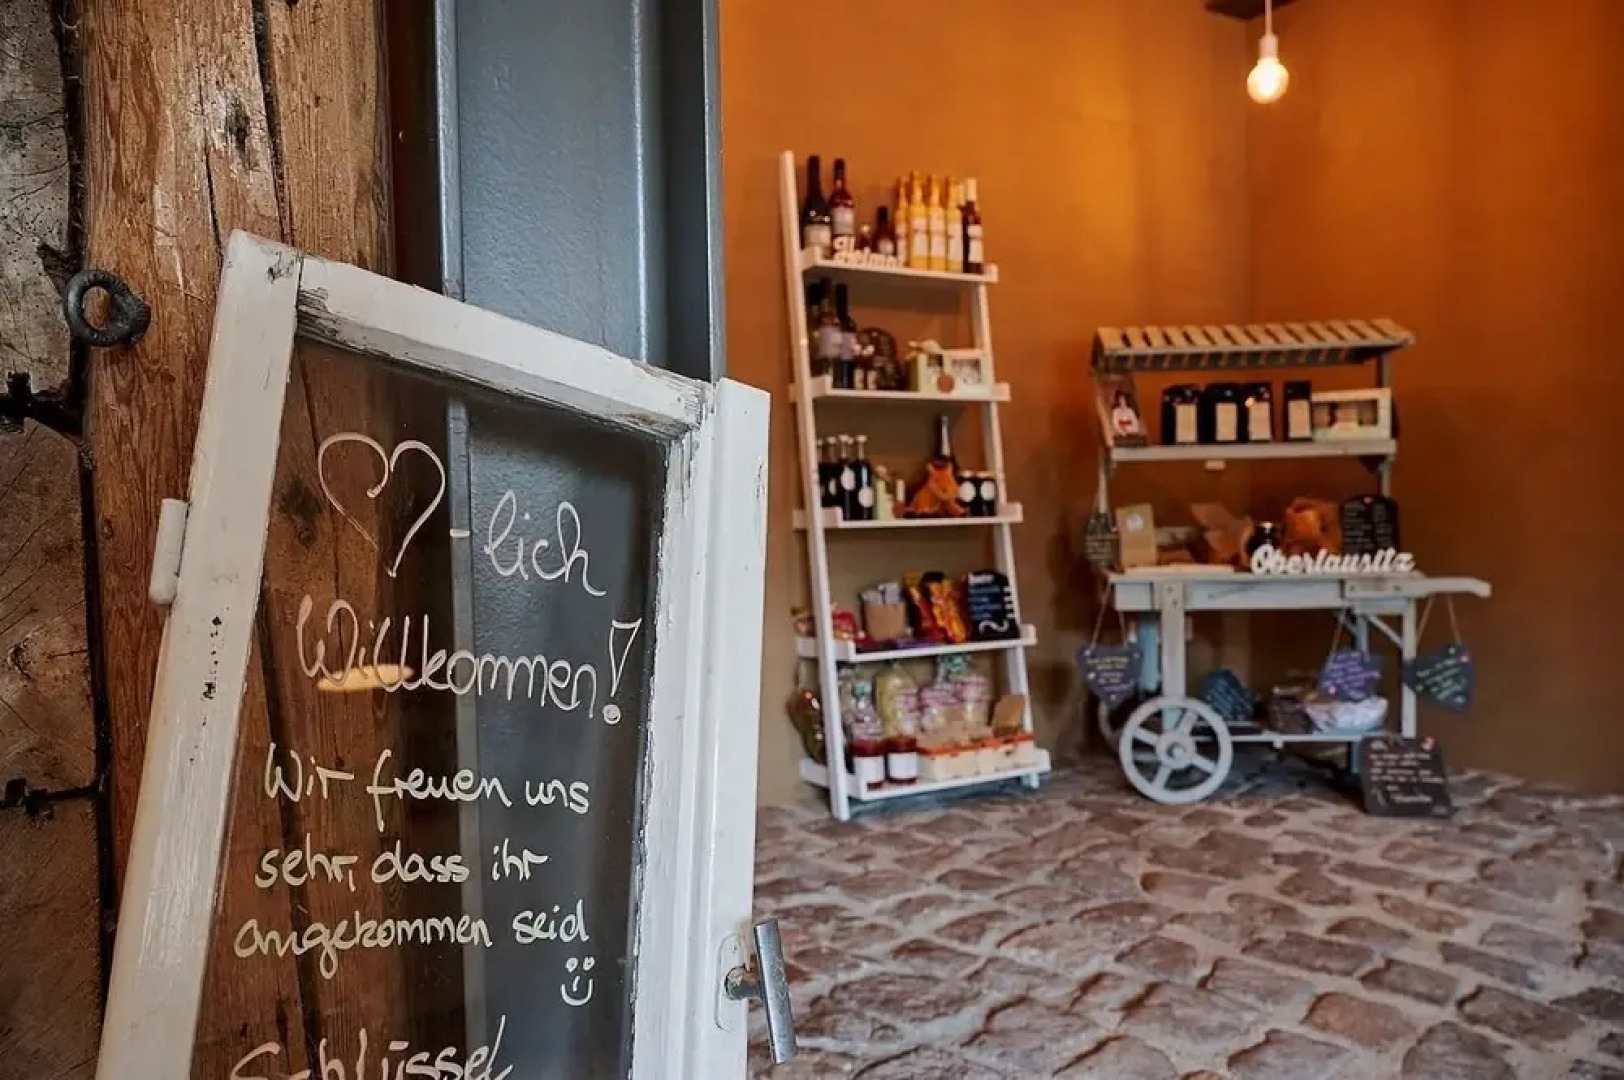 ♡-lich
Willkommen!
Wir freuen uns
sehr, dass ihr
angekommen seid
Schlüssel
Heimat
Oberlausitz